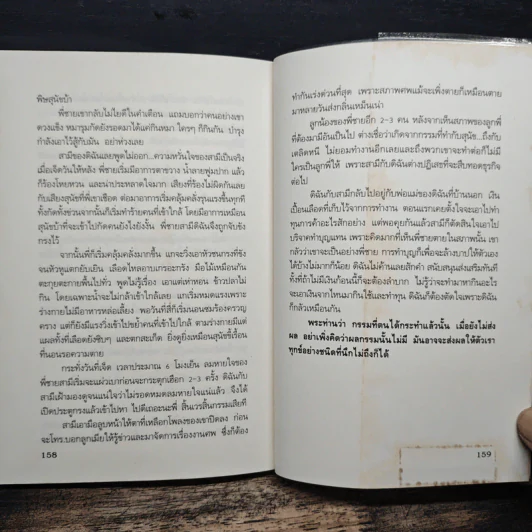 พิษสุนัขบ้า
พี่ชายเขากลับไม่ไยดีในคำเตือน แถมบอกว่าคนอย่างเขา
ดวงแข็ง หมารุมกัดยังรอดมาได้แต่กินหมา ใครๆ ก็กินกัน บำรุง
กำลังเอาไว้สู้กับมัน อย่าห่วงเลย
สามีของดิฉันเลยพูดไม่ออก...ความหวั่นใจของสามีเป็นจริง
เมื่อเจ็ดวันให้หลัง พี่ชายเริ่มมีอาการตาขวาง น้ำลายฟูมปาก แล้ว
ก็ร้องโหยหวน และน่าประหลาดใจมาก เสียงที่ร้องไม่ผิดกันเลย
กับเสียงสุนัขที่พี่เขาเชือด ต่อมาอาการเริ่มคลุ้มคลั่งรุนแรงขึ้นทุกที
ทั้งกัดทั้งข่วนจากนั้นก็เริ่มทำร้ายคนที่เข้าใกล้ โดยมีอาการเหมือน
สุนัขบ้าที่จะเข้าไปกัดคนยังไงยังงั้น พี่ชายสามีดิฉันจึงถูกจับขัง
กรงไว้
จากนั้นพี่ก็เริ่มคลุ้มคลั่งมากขึ้น แกจะวิ่งเอาหัวชนกรงที่ขัง
จนหัวหูแตกยับเยิน เลือดไหลอาบเกรอะกรัง มือไม้เหมือนกัน
ตะกุยตะกายพื้นไปทั่ว พูดไม่รู้เรื่อง เอาแต่เห่าหอน ข้าวปลาไม่
กิน โดยเฉพาะน้ำจะไม่กล้าเข้าใกล้เลย แกเริ่มหมดแรงเพราะ
ร่างกายไม่มีอาหารหล่อเลี้ยง พอวันที่สี่ก็เริ่มนอนซมร้องครวญ
คราง แต่ก็ยังมีแรงวิ่งเข้าไปขย้ำคนที่เข้าไปใกล้ ตามร่างกายมีแต่
แผลทั้งที่เลือดยังซิบๆ และตกสะเก็ด ยิ่งดูยิ่งเหมือนสุนัขขี้เรื้อน
ที่นอนรอความตาย
กระทั่งวันที่เจ็ด เวลาประมาณ 6 โมงเย็น ลมหายใจของ
พี่ชายสามีเริ่มจะแผ่วเบาก่อนจะกระตุกเฮือก 2-3 ครั้ง ดิฉันกับ
สามีเฝ้ามองดูจนแน่ใจว่าไม่รอดหมดลมหายใจแน่แล้ว จึงได้
เปิดประตูกรงแล้วเข้าไปหา ไปดีเถอะนะพี่ สิ้นเวรสิ้นกรรมเสียที
สามีเอามือลูบหน้าให้ตาที่เหลือกโพลงของเขาปิดลง ก่อน
จะโทร.บอกลูกเมียให้รู้ข่าวและมาจัดการเรื่องงานศพ ซึ่งก็ต้อง
158
ทำกันเร่งด่วนที่สุด เพราะสภาพศพแม้จะเพิ่งตายก็เหมือนตาย
มาหลายวันส่งกลิ่นเหม็นเน่า
ลูกน้องของพี่ชายอีก 2-3 คน หลังจากเห็นสภาพของลูกพี่
ที่ต้องมามีอันเป็นไป ต่างเชื่อว่าเกิดจากกรรมที่ทำกับสุนัข...ถึงกับ
เตลิดหนี ไม่ยอมทำงานนี้อีกเลยและถึงพวกเขาจะทำต่อก็ไม่มี
ใครเป็นลูกพี่ให้ เพราะสามีกับดิฉันต่างปฏิเสธที่จะสืบทอดธุรกิจ
ต่อไป
ดิฉันกับสามีกลับไปอยู่กับพ่อแม่ของดิฉันที่บ้านนอก เงิน
เปื้อนเลือดที่เก็บไว้จากการทำงาน ตอนแรกเคยตั้งใจจะเอาไปทำ
ทุนการค้าอะไรสักอย่าง แต่พอคุยกันแล้วสามีก็ตัดสินใจเอาไป
บริจาคทำบุญแทน เพราะคิดมากที่เห็นพี่ชายตายในสภาพนั้น เขา
กลัวว่าเขาจะเป็นอย่างพี่ชาย การทำบุญก็เพื่อจะล้างบาปให้ตัวเอง
ได้บ้างไม่มากก็น้อย ดิฉันไม่ค้านเลยสักคำ สนับสนุนส่งเสริมทันที
ทั้งที่ถ้าไม่มีเงินก้อนนี้ก็จะต้องลำบาก ไม่รู้ว่าจะทำมาหากินอะไร
จะเอาเงินจากไหนมากินใช้และทำทุน ดิฉันก็ต้องตัดใจเพราะดิฉัน
ก็กลัวเหมือนกัน
พระท่านว่า กรรมที่ตนได้กระทำแล้วนั้น เมื่อยังไม่ส่ง
ผล อย่าเพิ่งคิดว่าผลกรรมนั้นไม่มี มันอาจจะส่งผลให้ตัวเรา
ทุกข์อย่างชนิดที่นึกไม่ถึงก็ได้
159